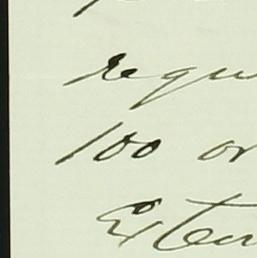 requ
100 or
Exten